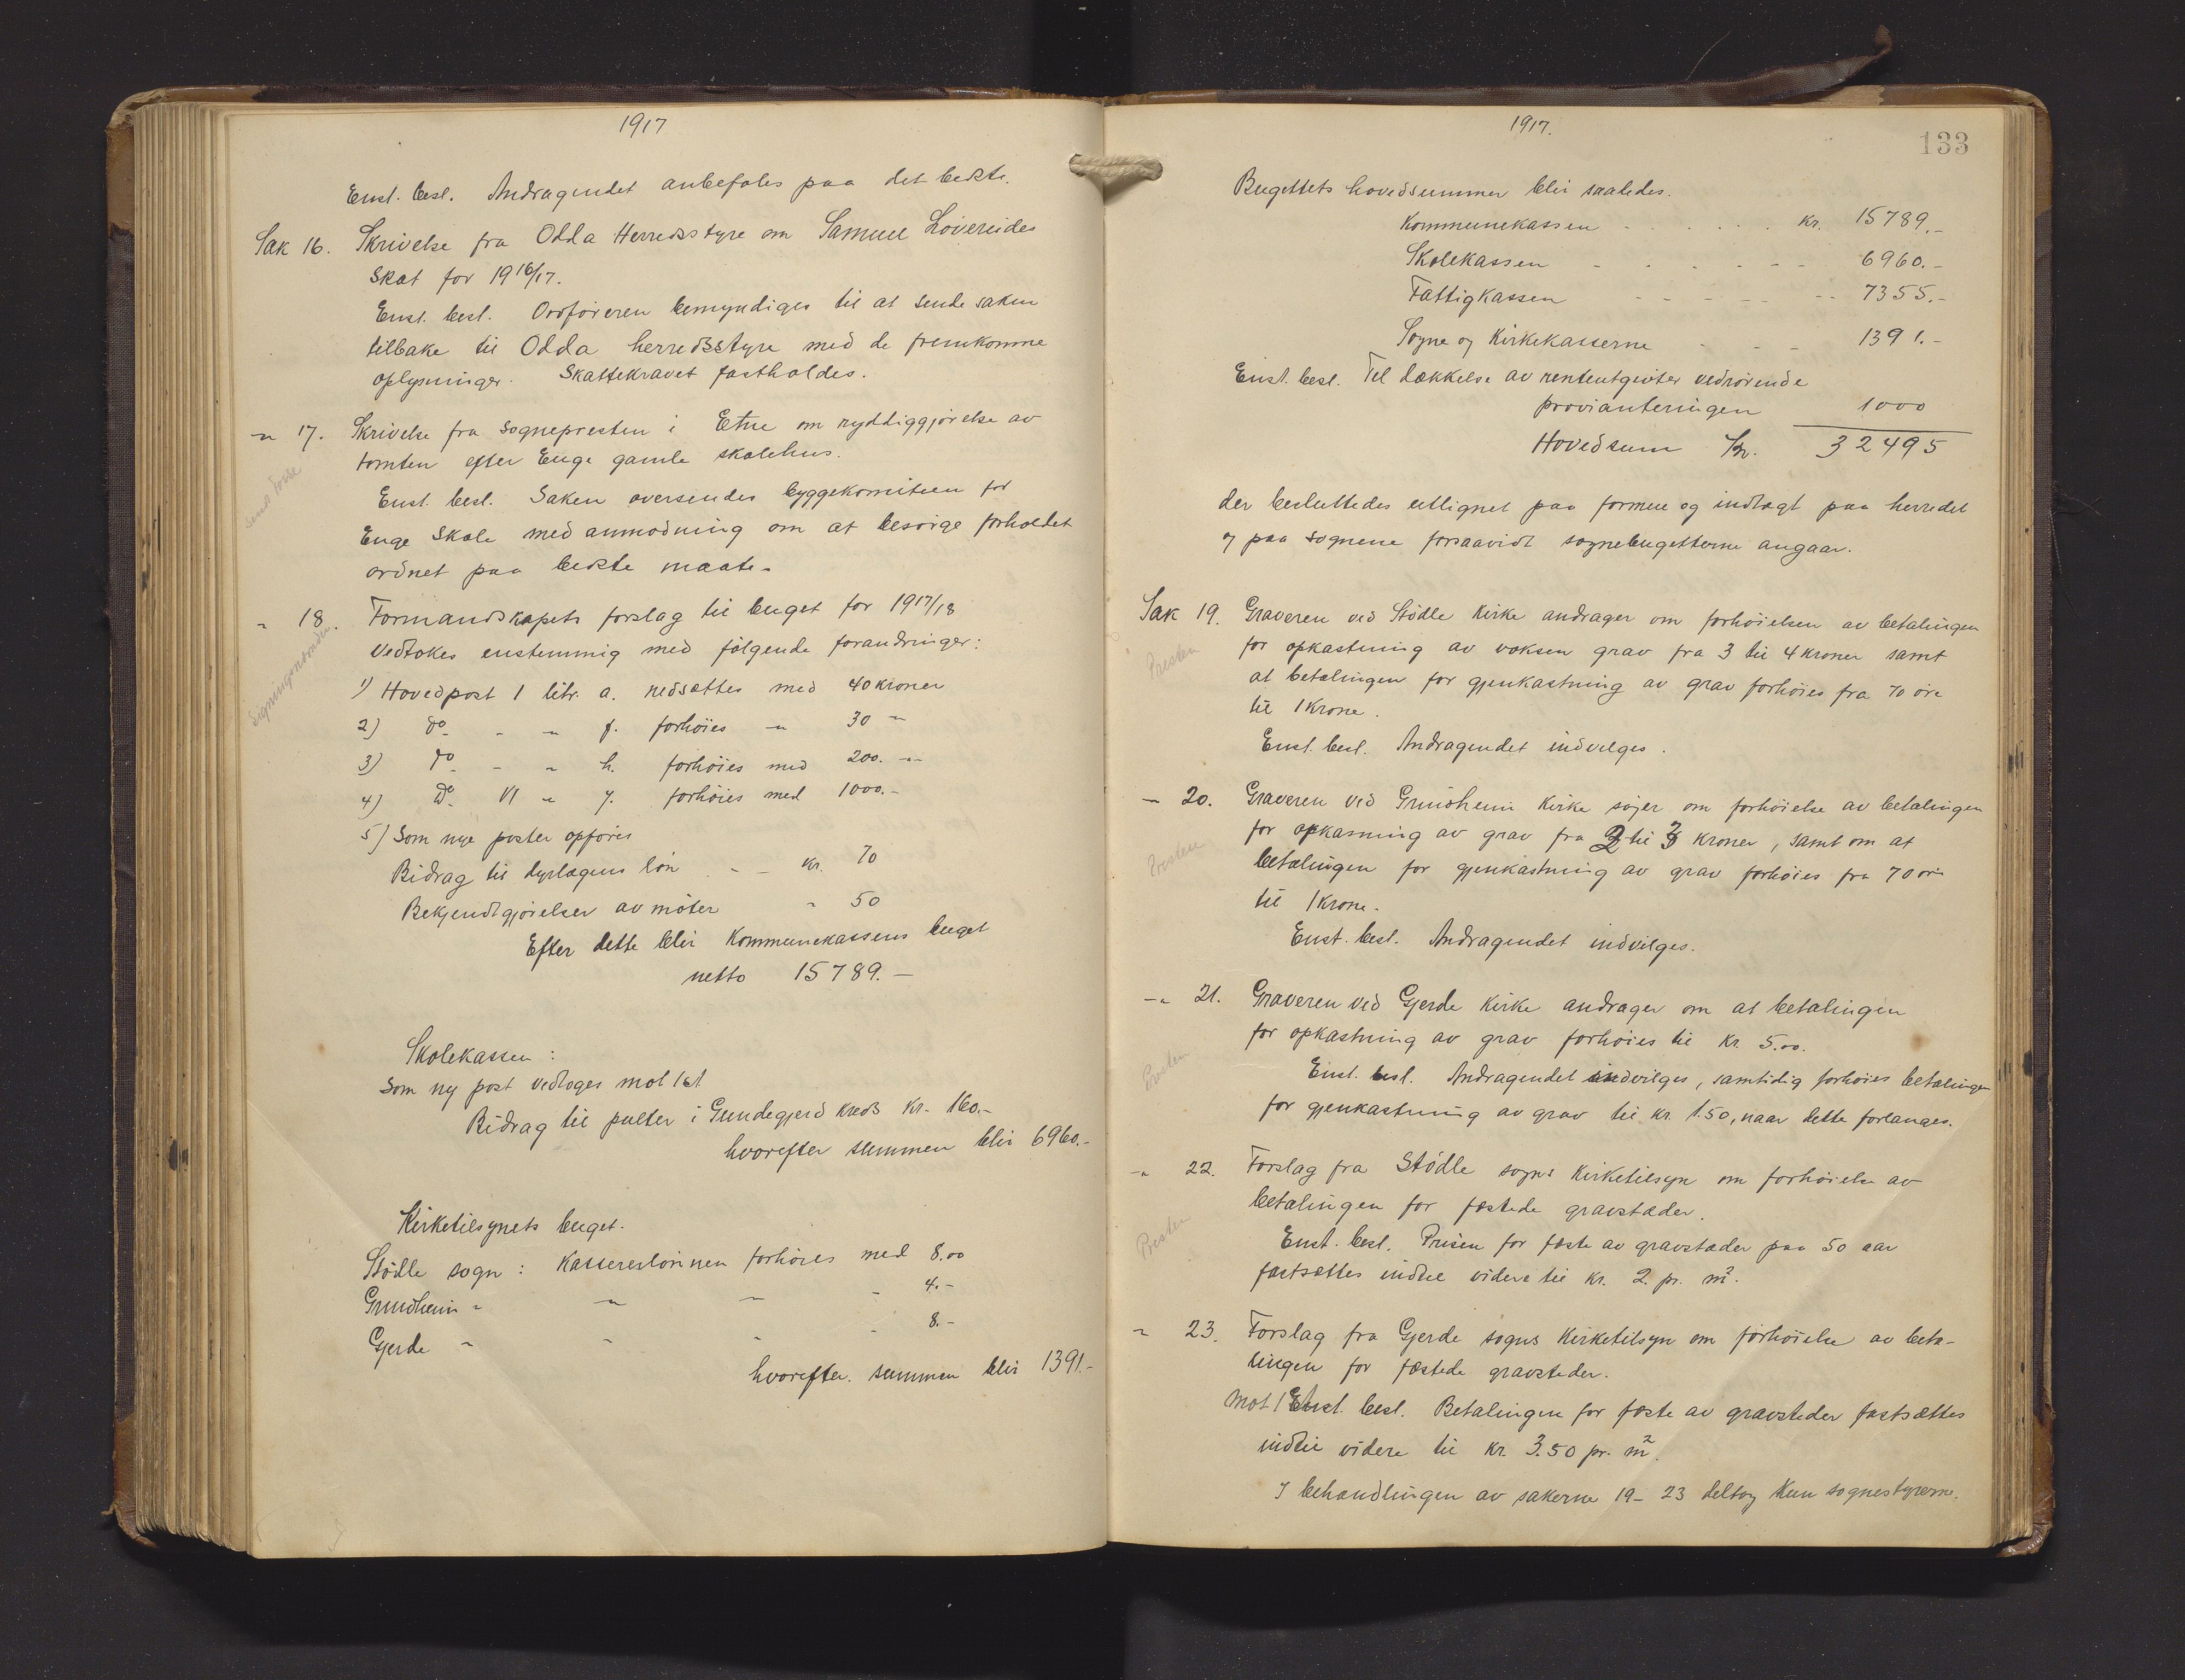 1917
Enst. besl. Andragendet anbefales paa det bedste.
Sak 16. Skrivelse fra Odda Herredsstyre om Samuel Løvereides
skat for 1916/17.
Enst. besl. Ordføreren bemyndiges til at sende saken
tilbake til Odda herredsstyre med de fremkomne
oplysninger. Skattekravet fastholdes.
" 17. Skrivelse fra sognepresten i Etne om ryddiggjørelse av
tomten efter Enge gamle skolehus.
Enst. besl. Saken oversendes byggekomiteen for
Enge skole med anmodning om at besørge forholdet
ordnet paa bedste maate.
" 18. Formandskapets forslag til buget for 1917/18
vedtokes enstemmig med følgende forandringer:
1) Hovedpost 1 litr. a. nedsættes med 40 kroner
2) do - " f. forhøies " 30 "
3) do - " h. forhøies med 200. "
4) do VI " y. forhøies med 1000.-
5) Som nye poster opføres
Bidrag til dyrlægens løn - - kr. 70
Bekjendtgjørelser av møter " 50
Efter dette blir Kommunekassens buget
netto 15789.-
Skolekassen:
Som ny post vedtoges mot 1 st
Bidrag til pulter i Gundegjerd kreds kr. 160.-
hvorefter summen blir 6960.-
Kirketilsynets buget.
Stødle sogn: Kassererlønnen forhøies med 8.00
Grindheim " " " - 4.-
Gjerde " " " - 8.-
hvorefter summen blir 1391.-
1917.
133
Bugettets hovedsummer blir saaledes.
Kommunekassen . . . . . . kr. 15789.-
Skolekassen - - - - - - 6960.-
Fattigkassen - - - - - - 7355.-
Sogne og Kirkekasserne - - - 1391.-
Enst. besl. Til dækkelse av renteutgivter vedrørende
provianteringen 1000
Hovedsum Kr. 32495
der besluttedes utlignet paa formue og indtægt paa herredet
og paa sognene forsaavidt sognebugetterne angaar.
Sak 19. Graveren ved Stødle Kirke andrager om forhøielsen av betalingen
Presten
for opkastning av voksen grav fra 3 til 4 kroner samt
at betalingen for gjenkastning av grav forhøies fra 70 øre
til 1 Krone.
Enst. besl. Andragendet indvilges.
" 20. Graveren ved Grindheim Kirke søjer om forhøielse av betalingen
Presten
for opkasning av grav fra 2 til 3 kroner, samt om at
betalingen for gjenkastning av grav forhøies fra 70 øre
til 1 Krone.
Enst. besl. Andragendet indvilges.
" 21. Graveren ved Gjerde Kirke andrager om at betalingen
for opkastning av grav forhøies til kr. 5.00.
Presten
Enst. besl. Andragendet indvilges, samtidig forhøies betalingen
for gjenkastning av grav til kr. 1.50, naar dette forlanges.
" 22. Forslag fra Stødle sogns Kirketilsyn om forhøielse av
betalingen for fæstede gravstæder.
Presten
Enst. besl. Prisen for fæste av gravstæder paa 50 aar
fastsættes indtil videre til kr. 2. pr. m².
" 23. Forslag fra Gjerde sogns Kirketilsyn om forhøielse av beta-
lingen for fæstede gravsteder.
Mot 1 st. besl. Betalingen for fæste av gravsteder fastsættes
indtil videre til kr. 3.50 pr. m².
I behandlingen av sakerne 19-23 deltog kun sognestyrerne.